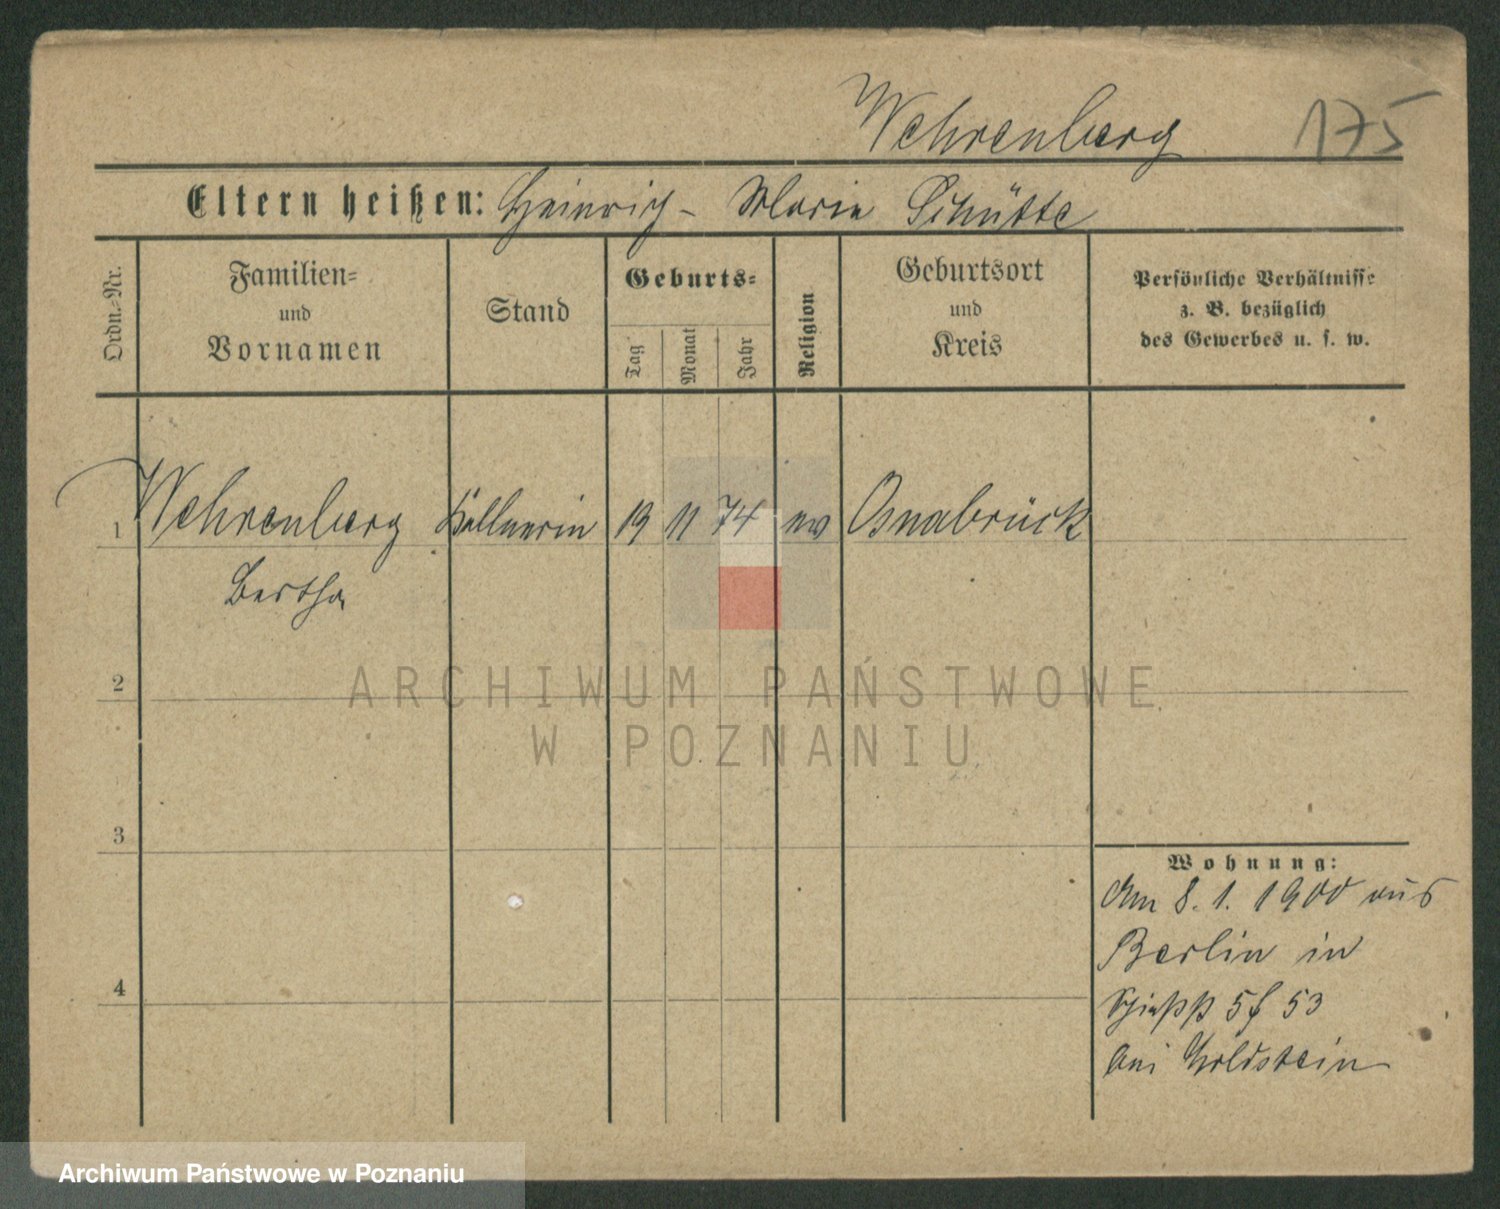 Wehrenberg 175
Eltern heißen: Heinrich - Marie Schütte
Ordn.-Nr.
Familien-
und
Vornamen
Stand
Geburts-
Tag
Monat
Jahr
Religion
Geburtsort
und
Kreis
Persönliche Verhältnisse
z. B. bezüglich
des Gewerbes u. s. w.
1 Wehrenberg Kellnerin 19 11 74 ev Osnabrück
Bertha
2
ARCHIWUM PAŃSTWOWE
W POZNANIU
3
Wohnung:
Am 8. 1. 1900 aus
Berlin in
4
53
bei Goldstein
Archiwum Państwowe w Poznaniu